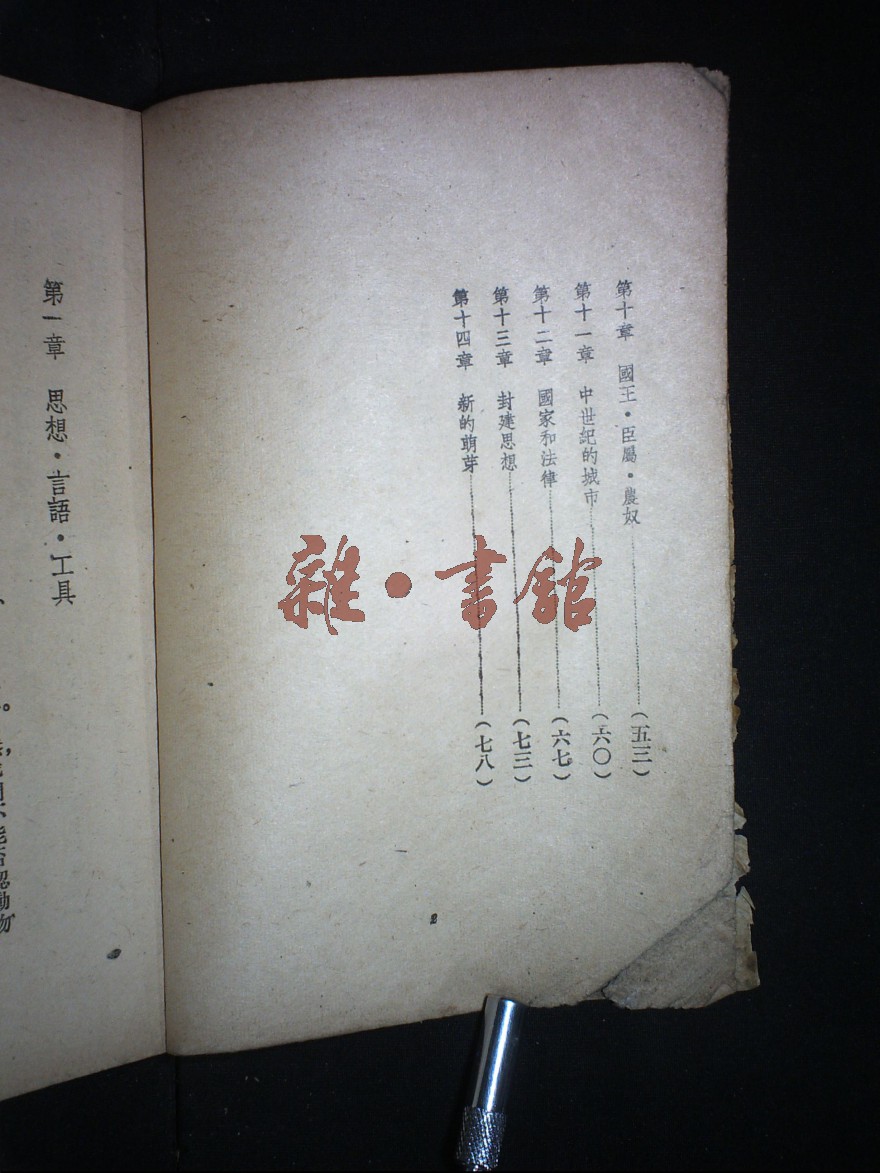 第十章　國王・臣屬・農奴………………(五三)
第十一章　中世紀的城市………………(六〇)
第十二章　國家和法律………………(六七)
第十三章　封建思想………………(七三)
第十四章　新的萌芽………………(七八)
2
雜・書館
第一章　思想・言語・工具
能否認動物